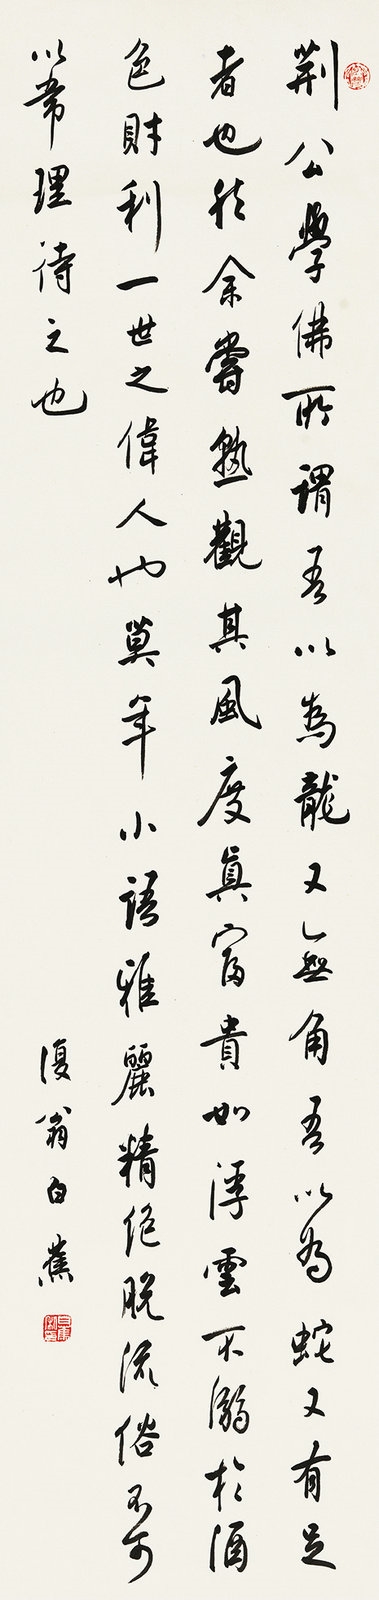 荆公學佛所謂吾以為龍又無角吾以為蛇又有足
者也然余嘗熟觀其風度真富貴如浮雲不溺於酒
色財利一世之偉人也莫年小語雅麗精絕脫流俗不可
以常理待之也
復翁白蕉